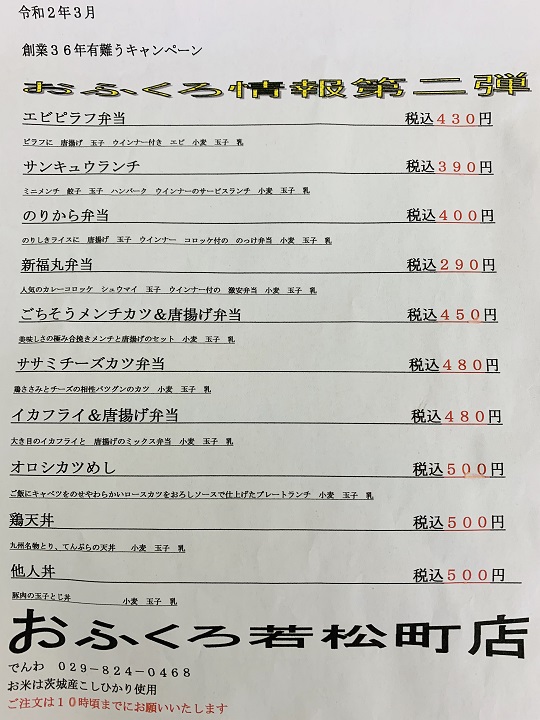 令和２年３月
創業３６年有難うキャンペーン
おふくろ情報第二弾
エビピラフ弁当 税込４３０円
ピラフに 唐揚げ 玉子 ウインナー付き エビ 小麦 玉子 乳
サンキュウランチ 税込３９０円
ミニメンチ 餃子 玉子 ハンバーク ウインナーのサービスランチ 小麦 玉子 乳
のりから弁当 税込４００円
のりしきライスに 唐揚げ 玉子 ウインナー コロッケ付の のっけ弁当 小麦 玉子 乳
新福丸弁当 税込２９０円
人気のカレーコロッケ シュウマイ 玉子 ウインナー付の 激安弁当 小麦 玉子 乳
ごちそうメンチカツ＆唐揚げ弁当 税込４５０円
美味しさの極み合挽きメンチと唐揚げのセット 小麦 玉子 乳
ササミチーズカツ弁当 税込４８０円
鶏ささみとチーズの相性バツグンのカツ 小麦 玉子 乳
イカフライ＆唐揚げ弁当 税込４８０円
大き目のイカフライと 唐揚げのミックス弁当 小麦 玉子 乳
オロシカツめし 税込５００円
ご飯にキャベツをのせやわらかいロースカツをおろしソースで仕上げたプレートランチ 小麦 玉子 乳
鶏天丼 税込５００円
九州名物とり、てんぷらの天丼 小麦 玉子 乳
他人丼 税込５００円
豚肉の玉子とじ丼 小麦 玉子 乳
おふくろ若松町店
でんわ ０２９－８２４－０４６８
お米は茨城産こしひかり使用
ご注文は１０時頃までにお願いいたします